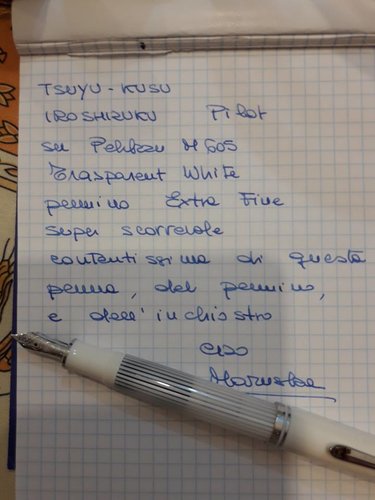 TSUYU-KUSU
IROSHIZUKU Pilot
su Pelikan M605
Trasparent White
pennino Extra Fine
super scorrevole
contentissima di questa
penna, del pennino,
e dell'inchiostro
ciao